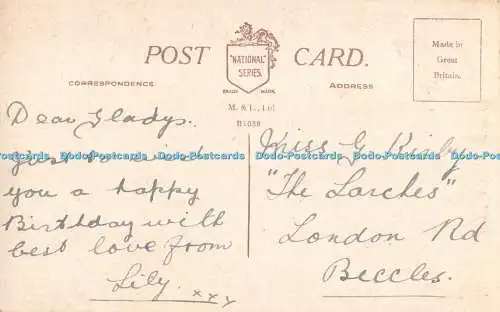 POST CARD.
"NATIONAL" SERIES.
TRADE MARK.
M & L, Ltd
CORRESPONDENCE
ADDRESS
Made in
Great
Britain.
Dear Gladys.
Just to wish
you a happy
Birthday with
best love from
Lily. xxx
Miss G
"The Larches"
London Rd
Beccles.
Dodo-Postcards Dodo-Postcards Dodo-Postcards Dodo-Postcards Dodo-Postcards